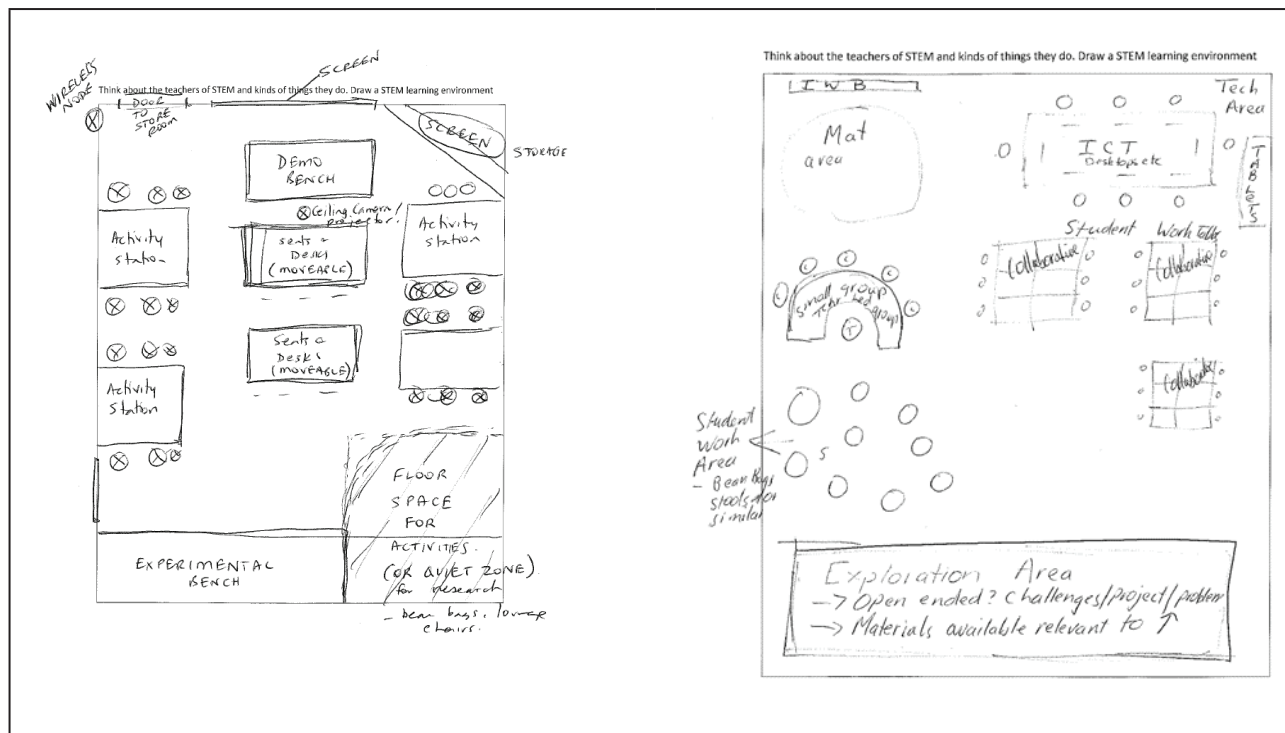 WIRELESS
NODE
SCREEN
Think about the teachers of STEM and kinds of things they do. Draw a STEM learning environment
DOOR
TO
STORE
ROOM
SCREEN
STORAGE
DEMO
BENCH
Ceiling Camera/
projector.
Activity
Station
Seats &
Desks
(MOVEABLE)
Activity
Station
Seats &
Desks
(MOVEABLE)
Activity
Station
FLOOR
SPACE
FOR
ACTIVITIES.
(OR QUIET ZONE)
for research
- bean bags, lounge
chairs.
EXPERIMENTAL
BENCH
Think about the teachers of STEM and kinds of things they do. Draw a STEM learning environment
IWB
Tech
Area
Mat
area
ICT
Desktops etc
TABLETS
Student Work
Collaborative
Collaborative
Small group
group
T
Collaborative
Student
Work
Area
- Bean Bags
stools or
similar
S
Exploration Area
→ Open ended? challenges/project/problem
→ Materials available relevant to ↑